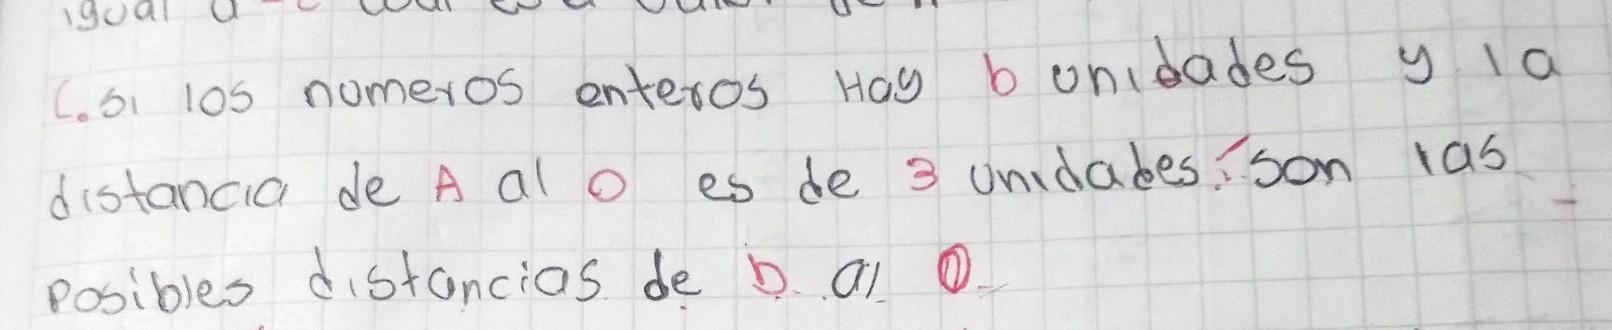 igual a -c cual es
C. si los numeros enteros Hay b unidades y la
distancia de A al 0 es de 3 unidades: son las
posibles distancias de b al 0